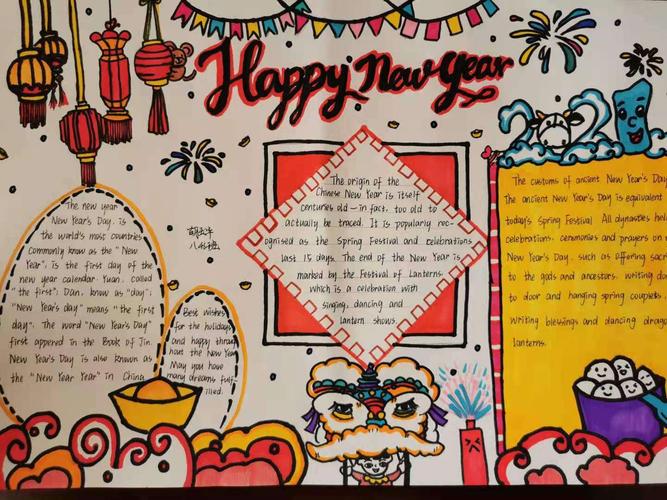 Happy New Year
2021
The new year
New Year's Day. is
the world's most countries
commonly know as the "New
Year". is the first day of the
new year calendar Yuan. called
the first". Dan. know as "day";
"New Year's day" means "the first
day". The word "New Year's Day"
first appered in the Book of Jin.
New Year's Day is also known as
the "New Year Year" in China
八
Best wishes
for the holidays
and happy throu
hout the New Year
May you have
many dreams fulf-
illed.
The origin of the
Chinese New Year is itself
centuries old — in fact. too old to
actually be traced. It is popularly rec-
ognised as the Spring Festival and celebrations
last 15 days. The end of the New Year is
marked by the Festival of Lanterns.
which is a celebration with
singing, dancing and
lantern shows.
The customs of ancient New Year's Day
The ancient New Year's Day is equivalent
today's Spring Festival All dynasties hol
celebrations. ceremonies and prayers on
New Year's Day. such as offering sac
to the gods and ancestors. writing do
to door and hanging spring couplets
writing blessings and dancing drago
lanterns.